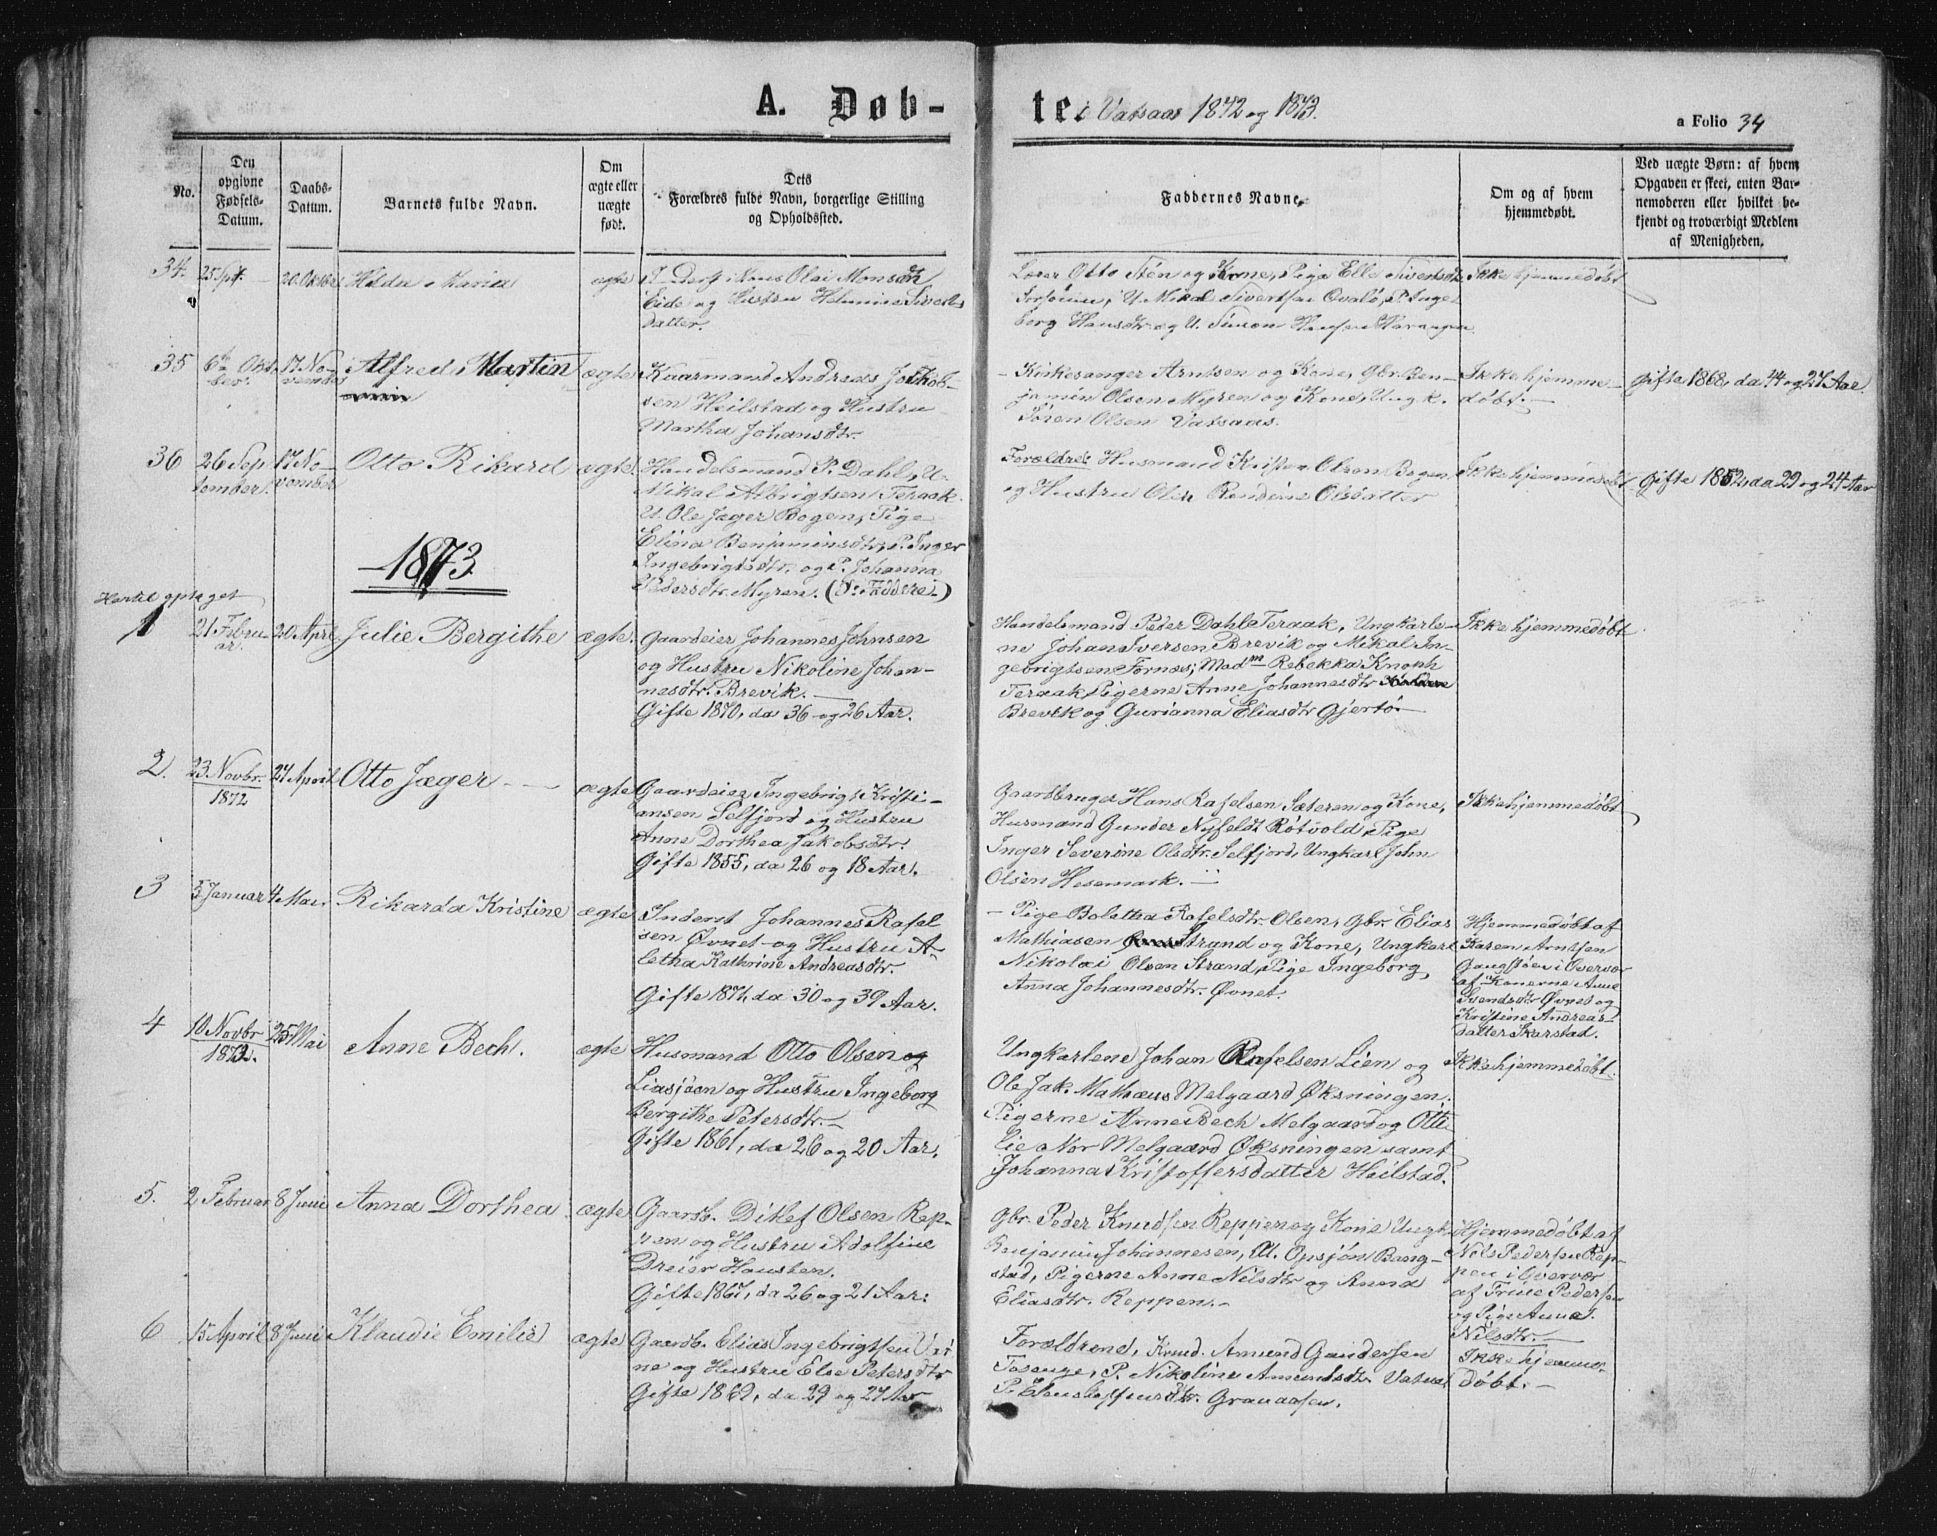 A. Døb-
te i Vatsaas 1872 og 1873.
a Folio 34
No.
Den opgivne Fødsels-Datum.
Daabs-Datum.
Barnets fulde Navn.
Om ægte eller uægte født.
Dets Forældres fulde Navn, borgerlige Stilling og Opholdssted.
Faddernes Navne.
Om og af hvem hjemmedøbt.
Ved uægte Børn: af hvem Opgaven er skeet, enten Barnemoderen eller hvilket bekjendt og troværdigt Medlem af Menigheden.
34. 25 Spt. 20. Oktober Maria ægte
Olai Monsen
Eide og Hustru Sivertsdatter.
Lærer Otto Stén og Kone, Pige Sivertsdtr
Sivertsen Kvalø, P. Ingeborg Hansdtr og U. Simon Hansen
Ikke hjemmedøbt
35 6te Oktober 17 November Alfred Martin ægte
Kaarmand Andreas Jakobsen
Heilstad og Hustru
Martha Johansdtr.
Kirkesanger Arntsen og Kone, Gbr. Benjamin
Olsen Myren og Kone, Ungk.
Søren Olsen Vatsaas.
Ikke hjemmedøbt.
Gifte 1868, da 44 og 27 Aar
36 26 September 17 November Otto Rikard ægte
Handelsmand P. Dahl, U.
Mikal Albrigtsen Teraak
U. Ole Jæger Bogen, Pige
Elina Benjaminsdtr, P. Inger
Ingebrigtsdtr. og P. Johanna
Pedersdtr. Myren. (Faddere)
Forældre: Husmand Olsen Bogen
og Hustru Rendine Olsdatter
Ikke hjemmedøbt
Gifte 1852, da 29 og 24 Aar
1873.
Hertil optaget
1 21 Februar 20 April Julie Bergithe ægte.
Gaardeier Johannes Johnsen
og Hustru Nikoline Johannesdtr.
Brevik.
Gifte 1870, da 36 og 26 Aar.
Handelsmand Peder Dahl Teraak, Ungkarlene
Johan Iversen Brevik og Mikal Ingebrigtsen
Fornæs; Madm Rebekka Knoph
Teraak, Pigerne Anne Johannesdtr
Brevik og Gurianna Eliasdtr Gjertø
Ikke hjemmedøbt
2. 23. Novbr. 1872 27 April Otto Jæger ægte
Gaardeier Ingebrigt Kristiansen
Selfjord og Hustru
Anne Dorthea Jakobsdtr.
Gifte 1855, da 26 og 18 Aar.
Gaardbruger Hans Rafelsen Sæteren og Kone,
Husmand Gunder Nyfeldt Røtvold, Pige
Inger Severine Olsdtr. Selfjord, Ungkarl John
Olsen Hesemark.
Ikke hjemmedøbt
3 5 Januar 4 Mai Rikarda Kristine ægte
Inderst Johannes Rafelsen
Øvnet og Hustru Aletha
Kathrine Andreasdtr.
Gifte 1871, da 30 og 39 Aar.
Pige Boletha Rafelsdtr. Olsen, Gbr. Elias
Mathiasen Strand og Kone, Ungkarl
Nikolai Olsen Strand, Pige Ingeborg
Anna Johannesdtr. Øvnet.
Hjemmedøbt af
Karen Arntsen
i Overvær
af Konerne Anne
Svendsdtr Øvnet og
Kristine Andreasdatter
Skarstad.
4 10 Novbr 1872. 25 Mai Anne Bech. ægte
Husmand Otto Olsen
Liasjøen og Hustru Ingeborg
Bergithe Petersdtr.
Gifte 1861, da 26 og 20 Aar.
Ungkarlene Johan Rafelsen Lien og
Ole Jak. Mathæus Melgaard Øksningen,
Pigerne Anne Bech Melgaard og Ottelie
Nor Melgaard Øksningen samt
Johanna Kristoffersdatter Heilstad.
Ikke hjemmedøbt.
5. 2 Februar 8 Juni Anna Dorthea ægte
Gaardb. Ditlef Olsen Reppen
og Hustru Adolfine
Dreier Hansten.
Gifte 1867, da 26 og 21 Aar.
Gbr. Peder Knudsen Reppen og Kone Ungk
Benjamin Johannesen, Bangstad,
Pigerne Anne Nilsdtr og Anna
Eliasdtr. Reppen.
Hjemmedøbt af
Nils Pedersen Reppen
i Overvær
af Trine Pedersen
og Pige Anne
Nilsdtr.
6 15 April 8 Juni Klaudie Emilie ægte
Gaardb. Elias Ingebrigtsen
og Hustru Else Petersdtr
Gifte 1869, da 29 og 27 Aar
Forældrene, Amund Gundersen
P. Nikoline Amundsdtr.
Granaasen.
Ikke hjemmedøbt.